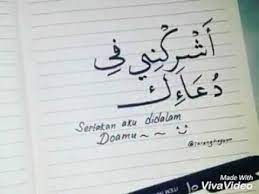 أَشْرِكْنِي فِي
دُعَاءِكَ
Sertakan aku didalam
Doamu ~ ~ ü
Made With
VivaVideo